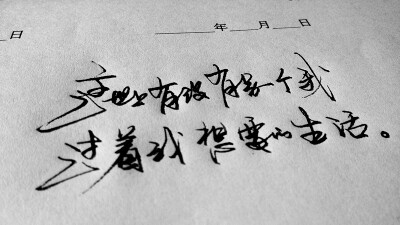 日 ______年____月____日
这世上有没有另一个我
过着我想要的生活。